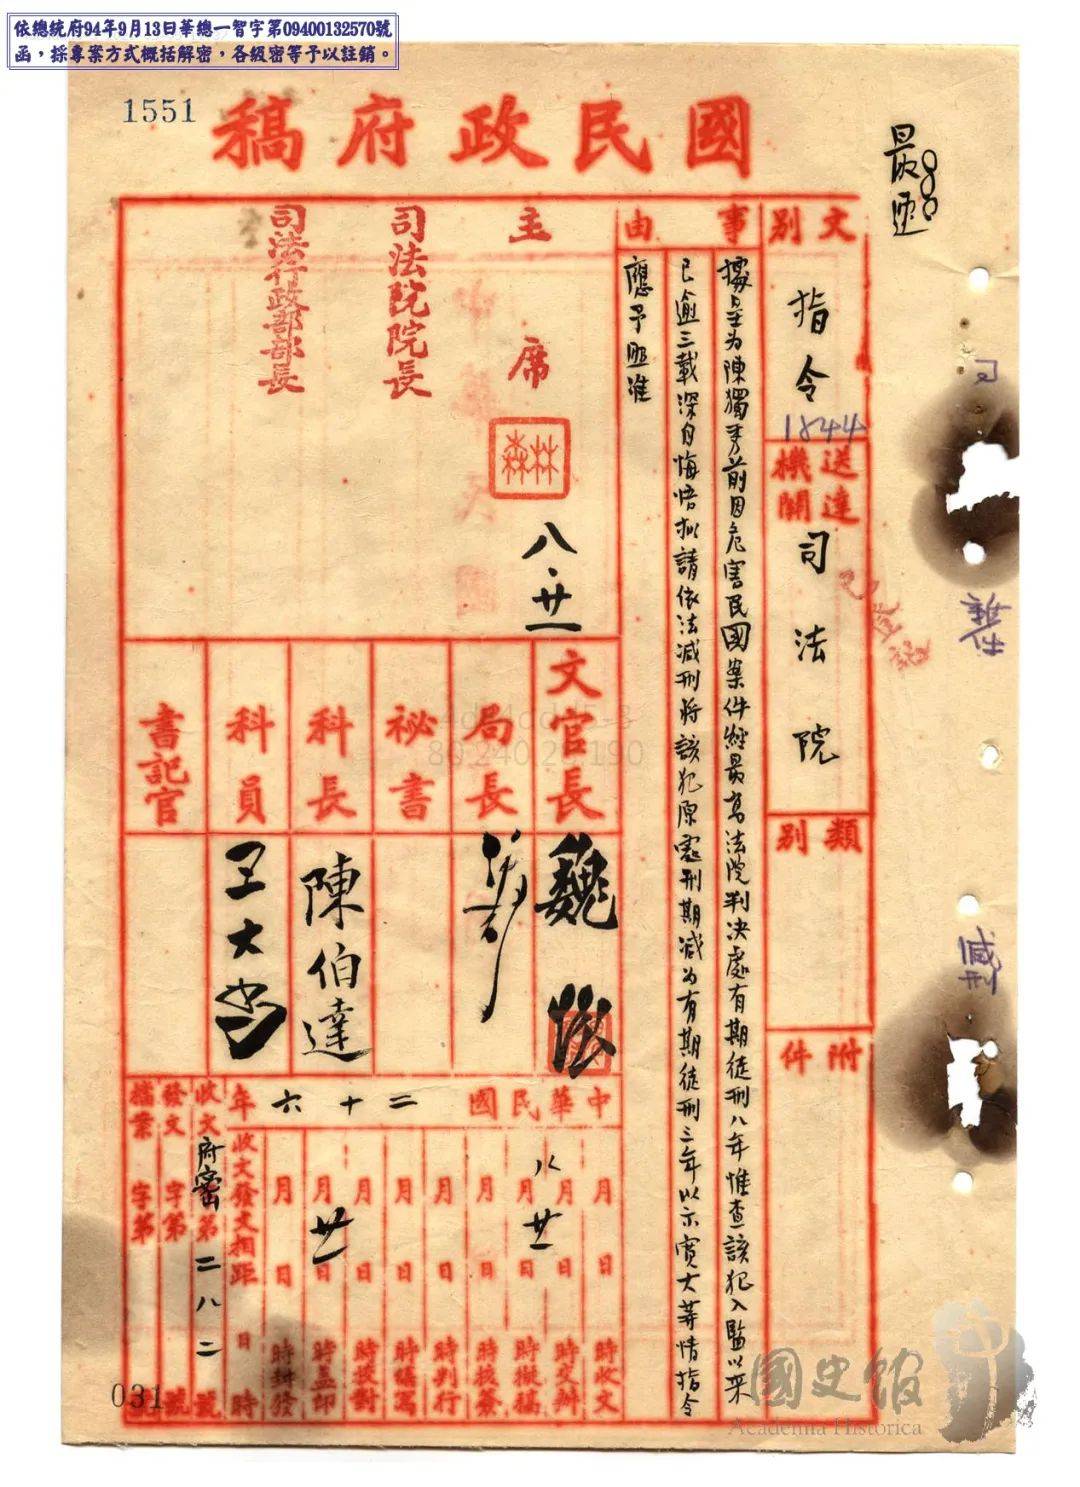 依總統府94年9月13日華總一智字第09400132570號
函，採專案方式概括解密，各級密等予以註銷。
1551
國民政府稿
最速
文別
指令
1844
送達機關
司法院
已登記
類別
附件
減刑
事由
據呈为陳獨秀前因危害民國案件經最高法院判决處有期徒刑八年惟查該犯入監以来
已逾三載深自悔悟拟請依法減刑将該犯原處刑期减为有期徒刑三年以示寬大等情指令
應予照准
主席
林森
八·廿一
司法院院長
司法行政部部長
文官長
局長
祕書
科長
科員
書記官
魏懷
陳伯達
王大
中華民國二十六年
月日時收文
八月廿一日時交辦
月日時擬稿
月日時核簽
月日時判行
月日時繕寫
月日時校對
月廿一日時蓋印
月日時封發
收文發文相距日時
收文府密字第二八二號
發文字第號
檔案字第號
031
國史館
Academia Historica